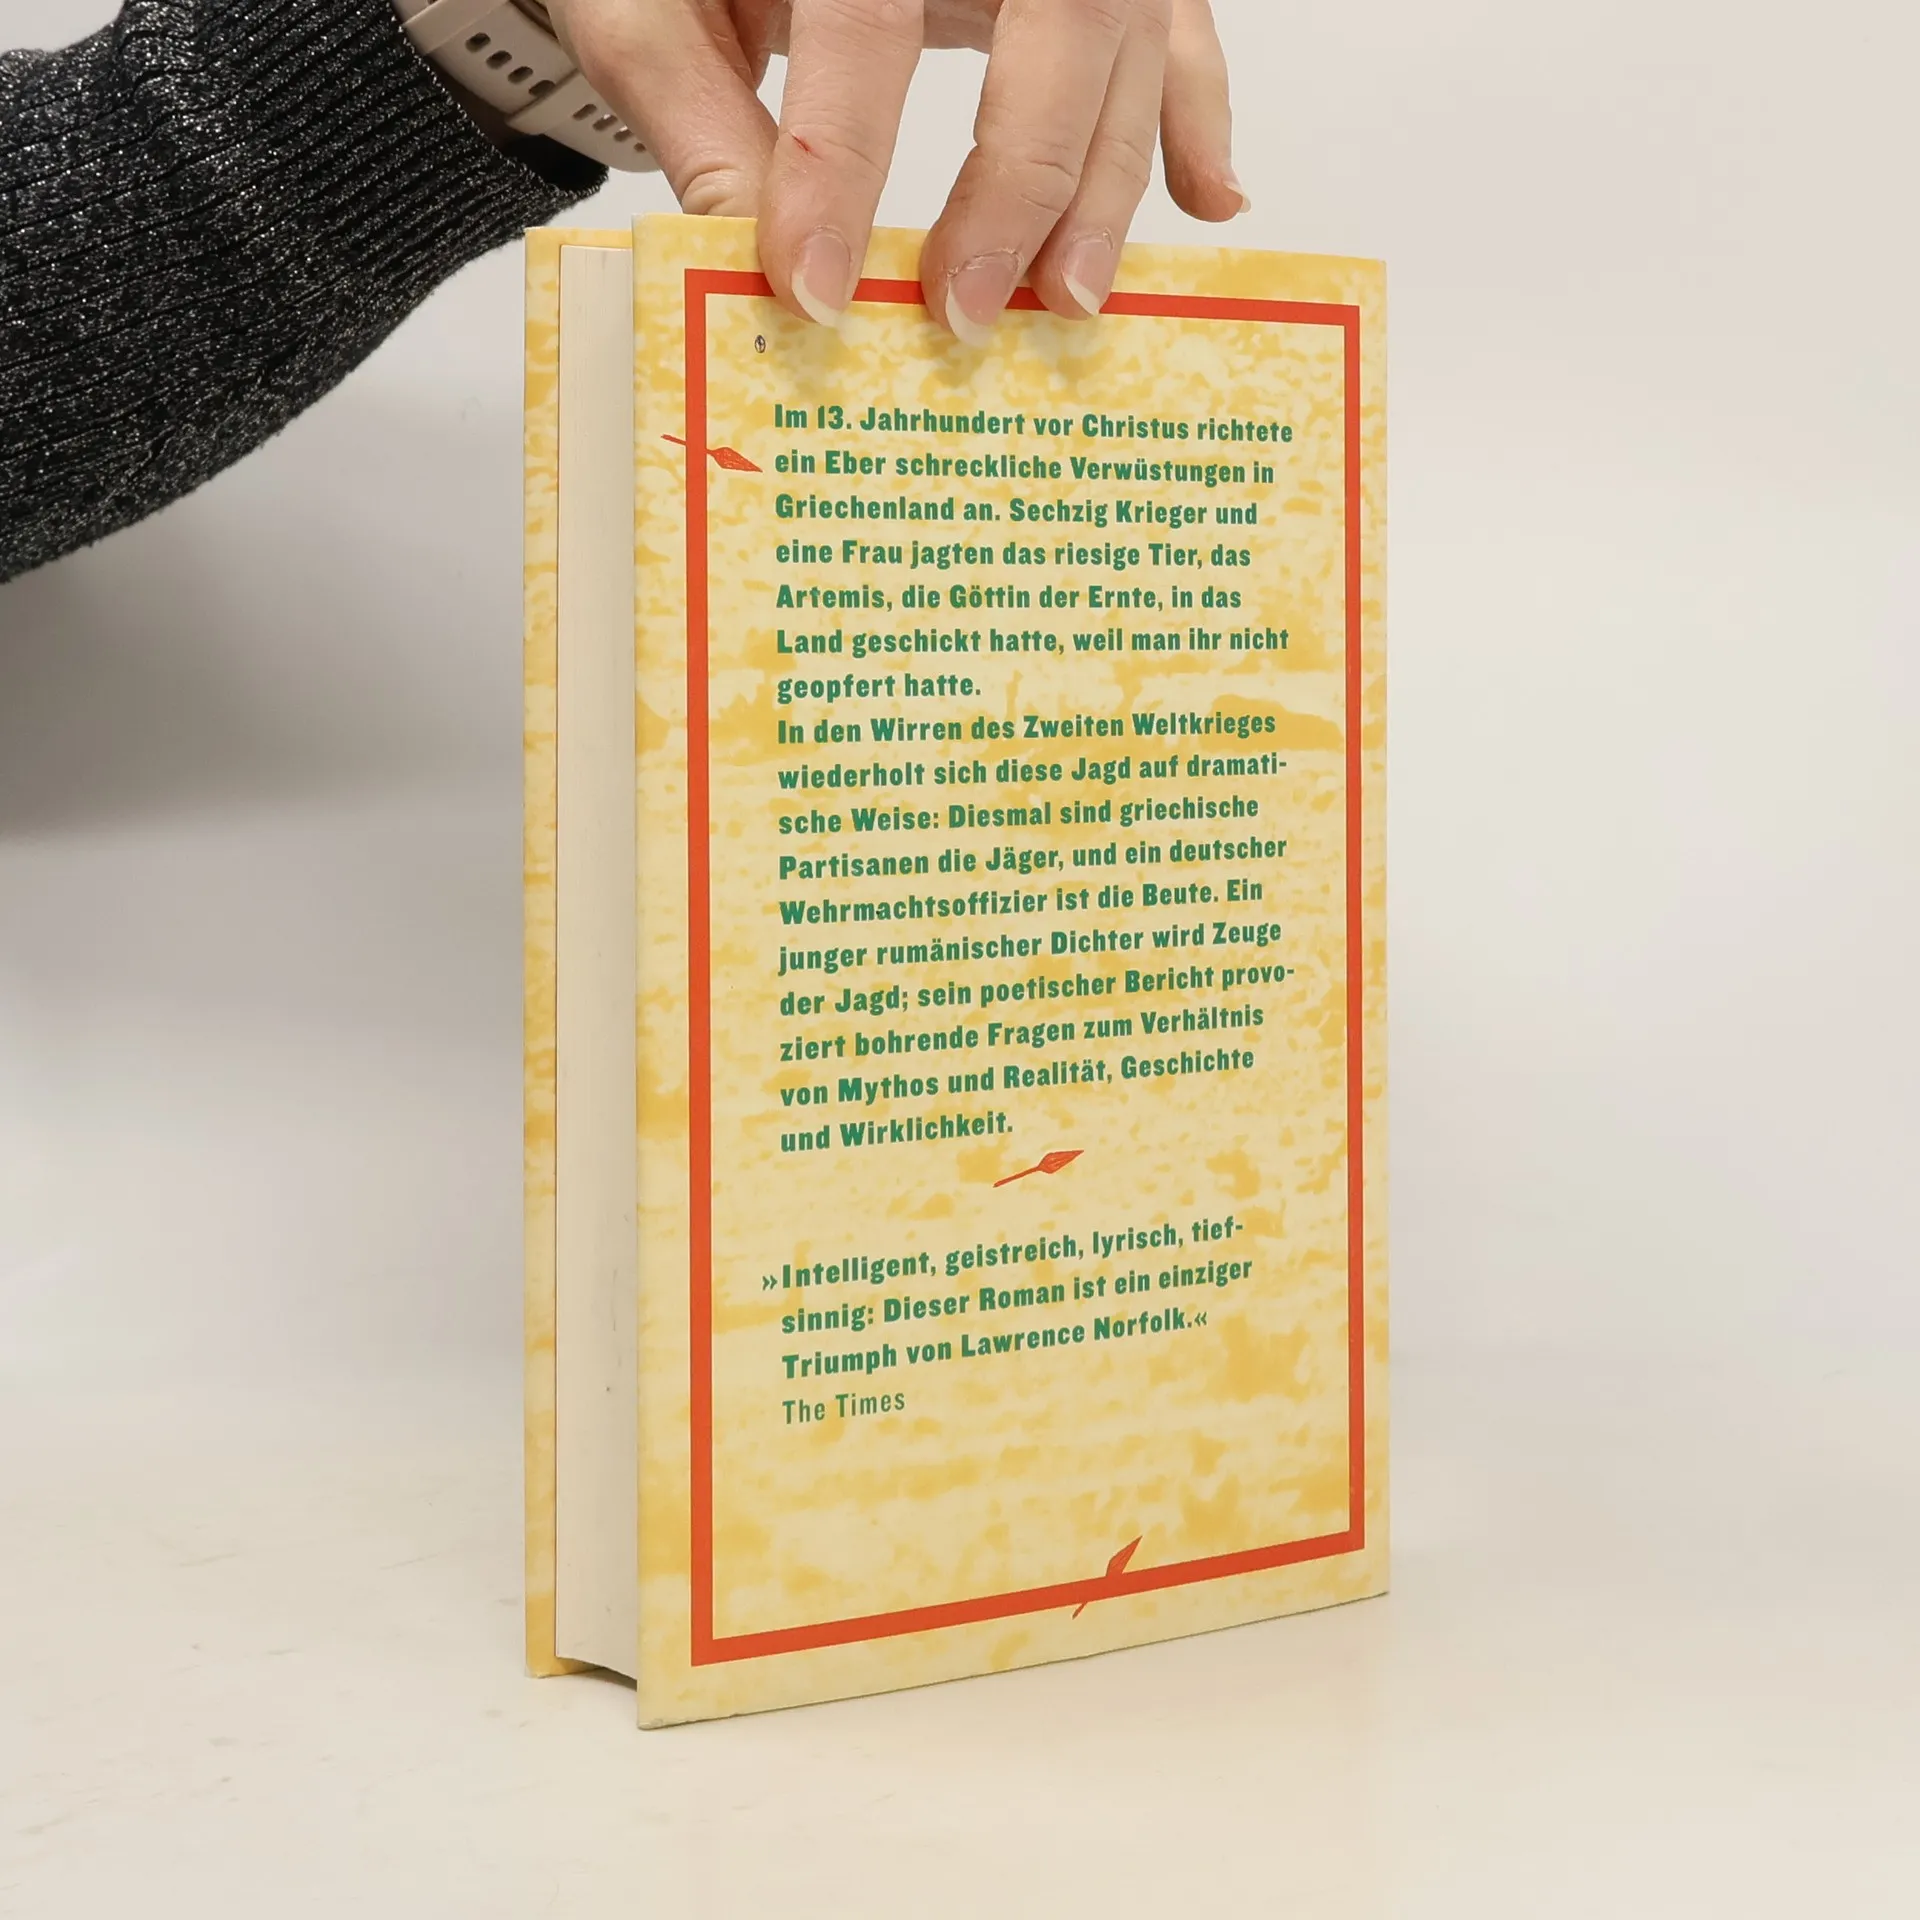 Im 13. Jahrhundert vor Christus richtete
ein Eber schreckliche Verwüstungen in
Griechenland an. Sechzig Krieger und
eine Frau jagten das riesige Tier, das
Artemis, die Göttin der Ernte, in das
Land geschickt hatte, weil man ihr nicht
geopfert hatte.
In den Wirren des Zweiten Weltkrieges
wiederholt sich diese Jagd auf dramati-
sche Weise: Diesmal sind griechische
Partisanen die Jäger, und ein deutscher
Wehrmachtsoffizier ist die Beute. Ein
junger rumänischer Dichter wird Zeuge
der Jagd; sein poetischer Bericht provo-
ziert bohrende Fragen zum Verhältnis
von Mythos und Realität, Geschichte
und Wirklichkeit.
»Intelligent, geistreich, lyrisch, tief-
sinnig: Dieser Roman ist ein einziger
Triumph von Lawrence Norfolk.«
The Times